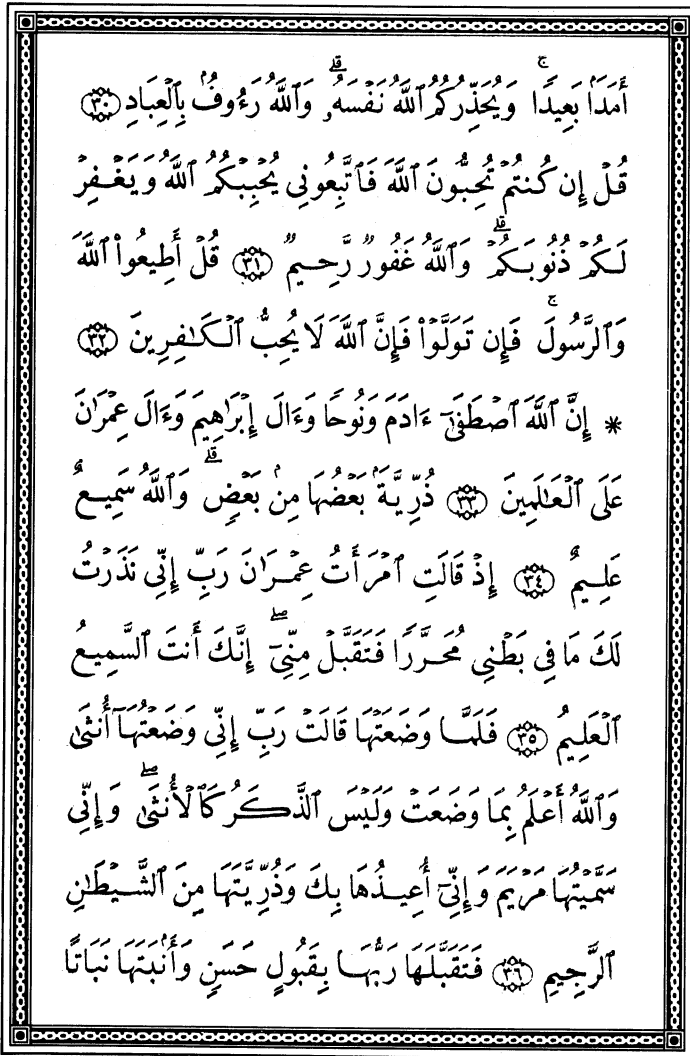 أَمَدَۢا بَعِيدٗاۚ وَيُحَذِّرُكُمُ ٱللَّهُ نَفۡسَهُۥۗ وَٱللَّهُ رَءُوفُۢ بِٱلۡعِبَادِ ٣٠
قُلۡ إِن كُنتُمۡ تُحِبُّونَ ٱللَّهَ فَٱتَّبِعُونِي يُحۡبِبۡكُمُ ٱللَّهُ وَيَغۡفِرۡ
لَكُمۡ ذُنُوبَكُمۡۗ وَٱللَّهُ غَفُورٞ رَّحِيمٞ ٣١ قُلۡ أَطِيعُواْ ٱللَّهَ
وَٱلرَّسُولَۖ فَإِن تَوَلَّوۡاْ فَإِنَّ ٱللَّهَ لَا يُحِبُّ ٱلۡكَٰفِرِينَ ٣٢
* إِنَّ ٱللَّهَ ٱصۡطَفَىٰٓ ءَادَمَ وَنُوحٗا وَءَالَ إِبۡرَٰهِيمَ وَءَالَ عِمۡرَٰنَ
عَلَى ٱلۡعَٰلَمِينَ ٣٣ ذُرِّيَّةَۢ بَعۡضُهَا مِنۢ بَعۡضٖۗ وَٱللَّهُ سَمِيعٌ
عَلِيمٌ ٣٤ إِذۡ قَالَتِ ٱمۡرَأَتُ عِمۡرَٰنَ رَبِّ إِنِّي نَذَرۡتُ
لَكَ مَا فِي بَطۡنِي مُحَرَّرٗا فَتَقَبَّلۡ مِنِّيٓۖ إِنَّكَ أَنتَ ٱلسَّمِيعُ
ٱلۡعَلِيمُ ٣٥ فَلَمَّا وَضَعَتۡهَا قَالَتۡ رَبِّ إِنِّي وَضَعۡتُهَآ أُنثَىٰ
وَٱللَّهُ أَعۡلَمُ بِمَا وَضَعَتۡ وَلَيۡسَ ٱلذَّكَرُ كَٱلۡأُنثَىٰۖ وَإِنِّي
سَمَّيۡتُهَا مَرۡيَمَ وَإِنِّيٓ أُعِيذُهَا بِكَ وَذُرِّيَّتَهَا مِنَ ٱلشَّيۡطَٰنِ
ٱلرَّجِيمِ ٣٦ فَتَقَبَّلَهَا رَبُّهَا بِقَبُولٍ حَسَنٖ وَأَنۢبَتَهَا نَبَاتًا